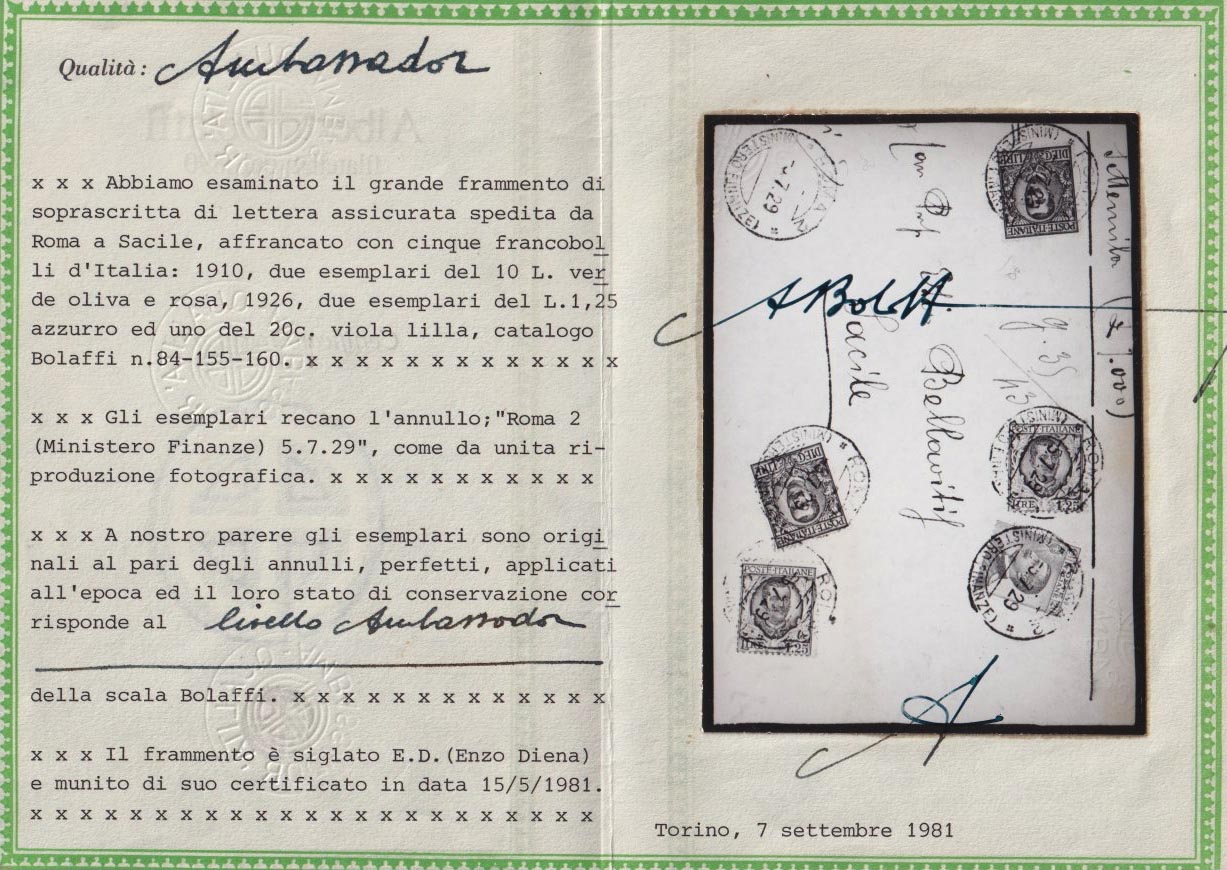 Qualità: Ambassador
x x x Abbiamo esaminato il grande frammento di
soprascritta di lettera assicurata spedita da
Roma a Sacile, affrancato con cinque francobol
li d'Italia: 1910, due esemplari del 10 L. ver
de oliva e rosa, 1926, due esemplari del L.1,25
azzurro ed uno del 20c. viola lilla, catalogo
Bolaffi n.84-155-160. x x x x x x x x x x x x x
x x x Gli esemplari recano l'annullo;"Roma 2
(Ministero Finanze) 5.7.29", come da unita ri-
produzione fotografica. x x x x x x x x x x x
x x x A nostro parere gli esemplari sono origi
nali al pari degli annulli, perfetti, applicati
all'epoca ed il loro stato di conservazione cor
risponde al livello Ambassador
della scala Bolaffi. x x x x x x x x x x x x x
x x x Il frammento è siglato E.D.(Enzo Diena)
e munito di suo certificato in data 15/5/1981.
x x x x x x x x x x x x x x x x x x x x x x x
ROMA 2
(MINISTERO FINANZE)
-5.7.29
POSTE ITALIANE
DIECI LIRE
Settemila
(£ 7.000)
g. 35
Sacile
POSTE ITALIANE
LIRE 1.25
POSTE ITALIANE
DIECI LIRE
POSTE ITALIANE
LIRE 1.25
(MINISTERO FINANZE)
-5.7.29
Torino, 7 settembre 1981